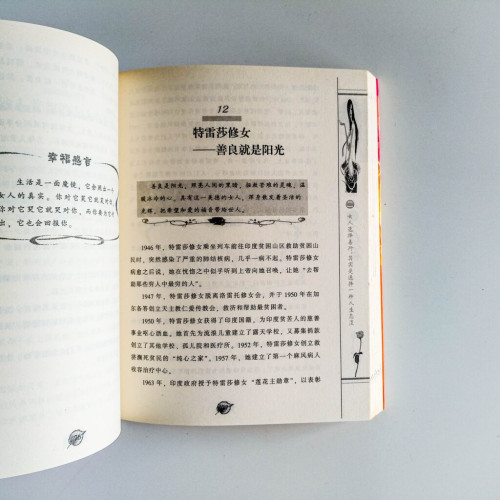 幸福感言
生活是一面魔镜，它会照出一个
女人的真实。你对它笑它就笑对你，
你对它哭它就哭对你，而你要做
出，它也会回报你。
12
特雷莎修女
——善良就是阳光
善良是阳光，照亮人间的黑暗，拯救苦难的灵魂，温
暖冰冷的心。具有这一美德的女人，浑身散发着圣洁的
光辉，把希望和爱的福音带给世人。
1946 年，特雷莎修女乘坐列车前往印度贫困山区救助贫困山
民时，突然感染了严重的肺结核病，几乎一病不起。特雷莎修女
病愈之后说，她在恍惚之中似乎听到上帝向她召唤，让她“去帮
助那些穷人中最穷的人”。
1947 年，特雷莎修女脱离洛雷托修女会，并于 1950 年在加
尔各答创立天主教仁爱传教会，救济和帮助最贫困者。
1950 年，特雷莎修女获得了印度国籍，为印度贫苦人的慈善
事业呕心沥血。她首先为流浪儿童建立了露天学校，又募集捐款
创立了其他学校、孤儿院和医疗所。1952 年，特雷莎修女创立救
济濒死贫民的“纯心之家”。1957 年，她建立了第一个麻风病人
收容治疗中心。
1963 年，印度政府授予特雷莎修女“莲花主勋章”，以表彰
女人选择善行，其实是选择一种人生态度